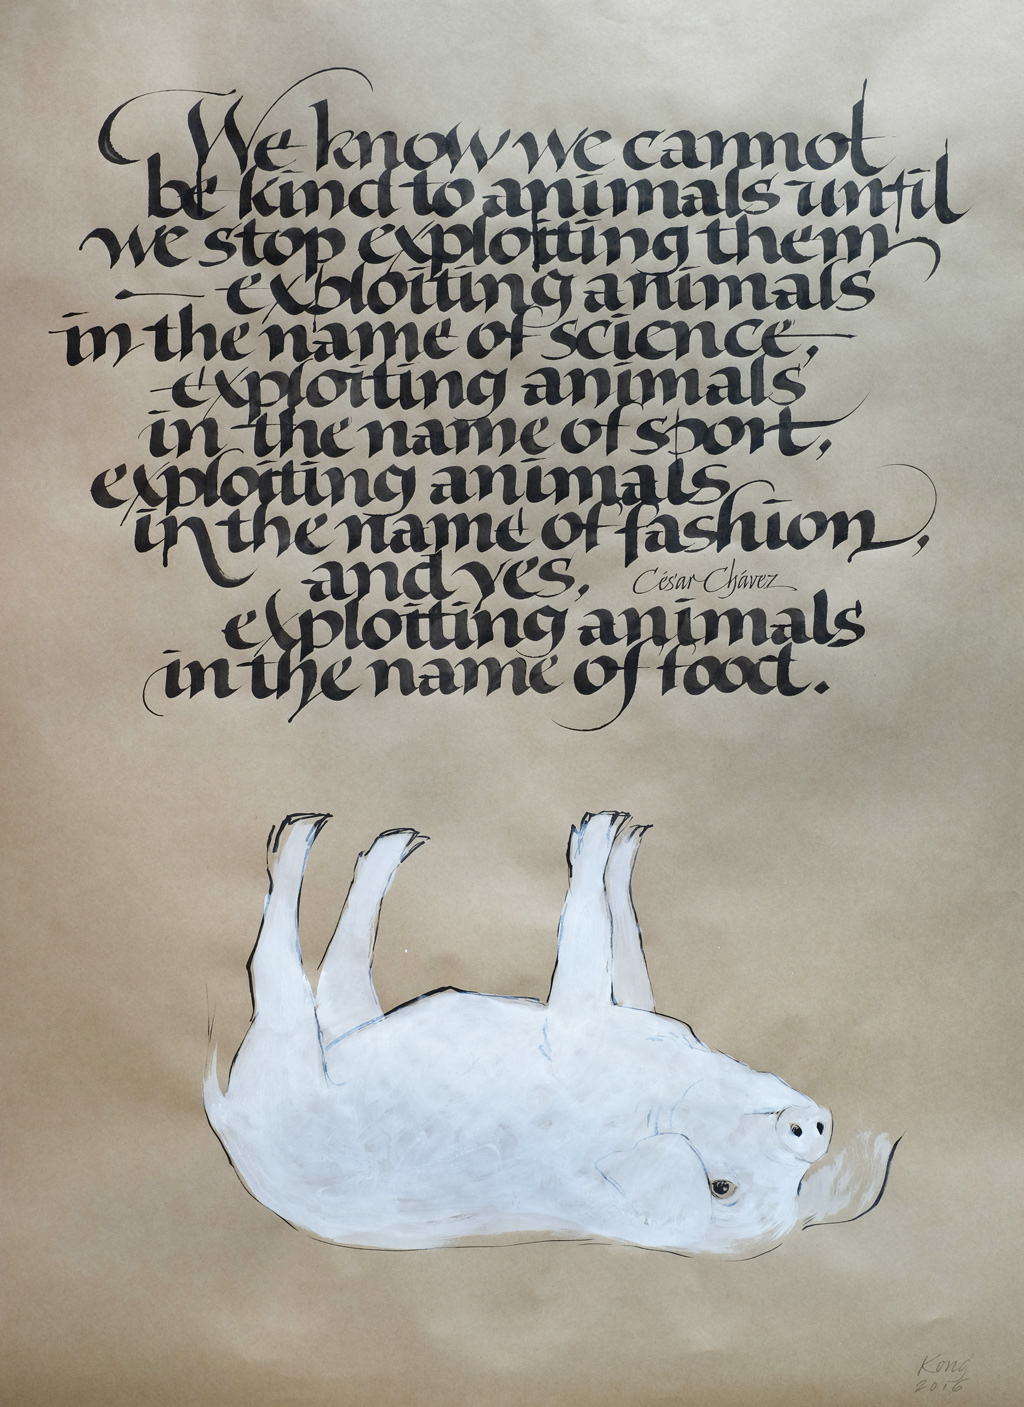 We know we cannot
be kind to animals until
we stop exploiting them
— exploiting animals
in the name of science,
exploiting animals
in the name of sport,
exploiting animals
in the name of fashion,
and yes,
César Chávez
exploiting animals
in the name of food.
Kong
2016